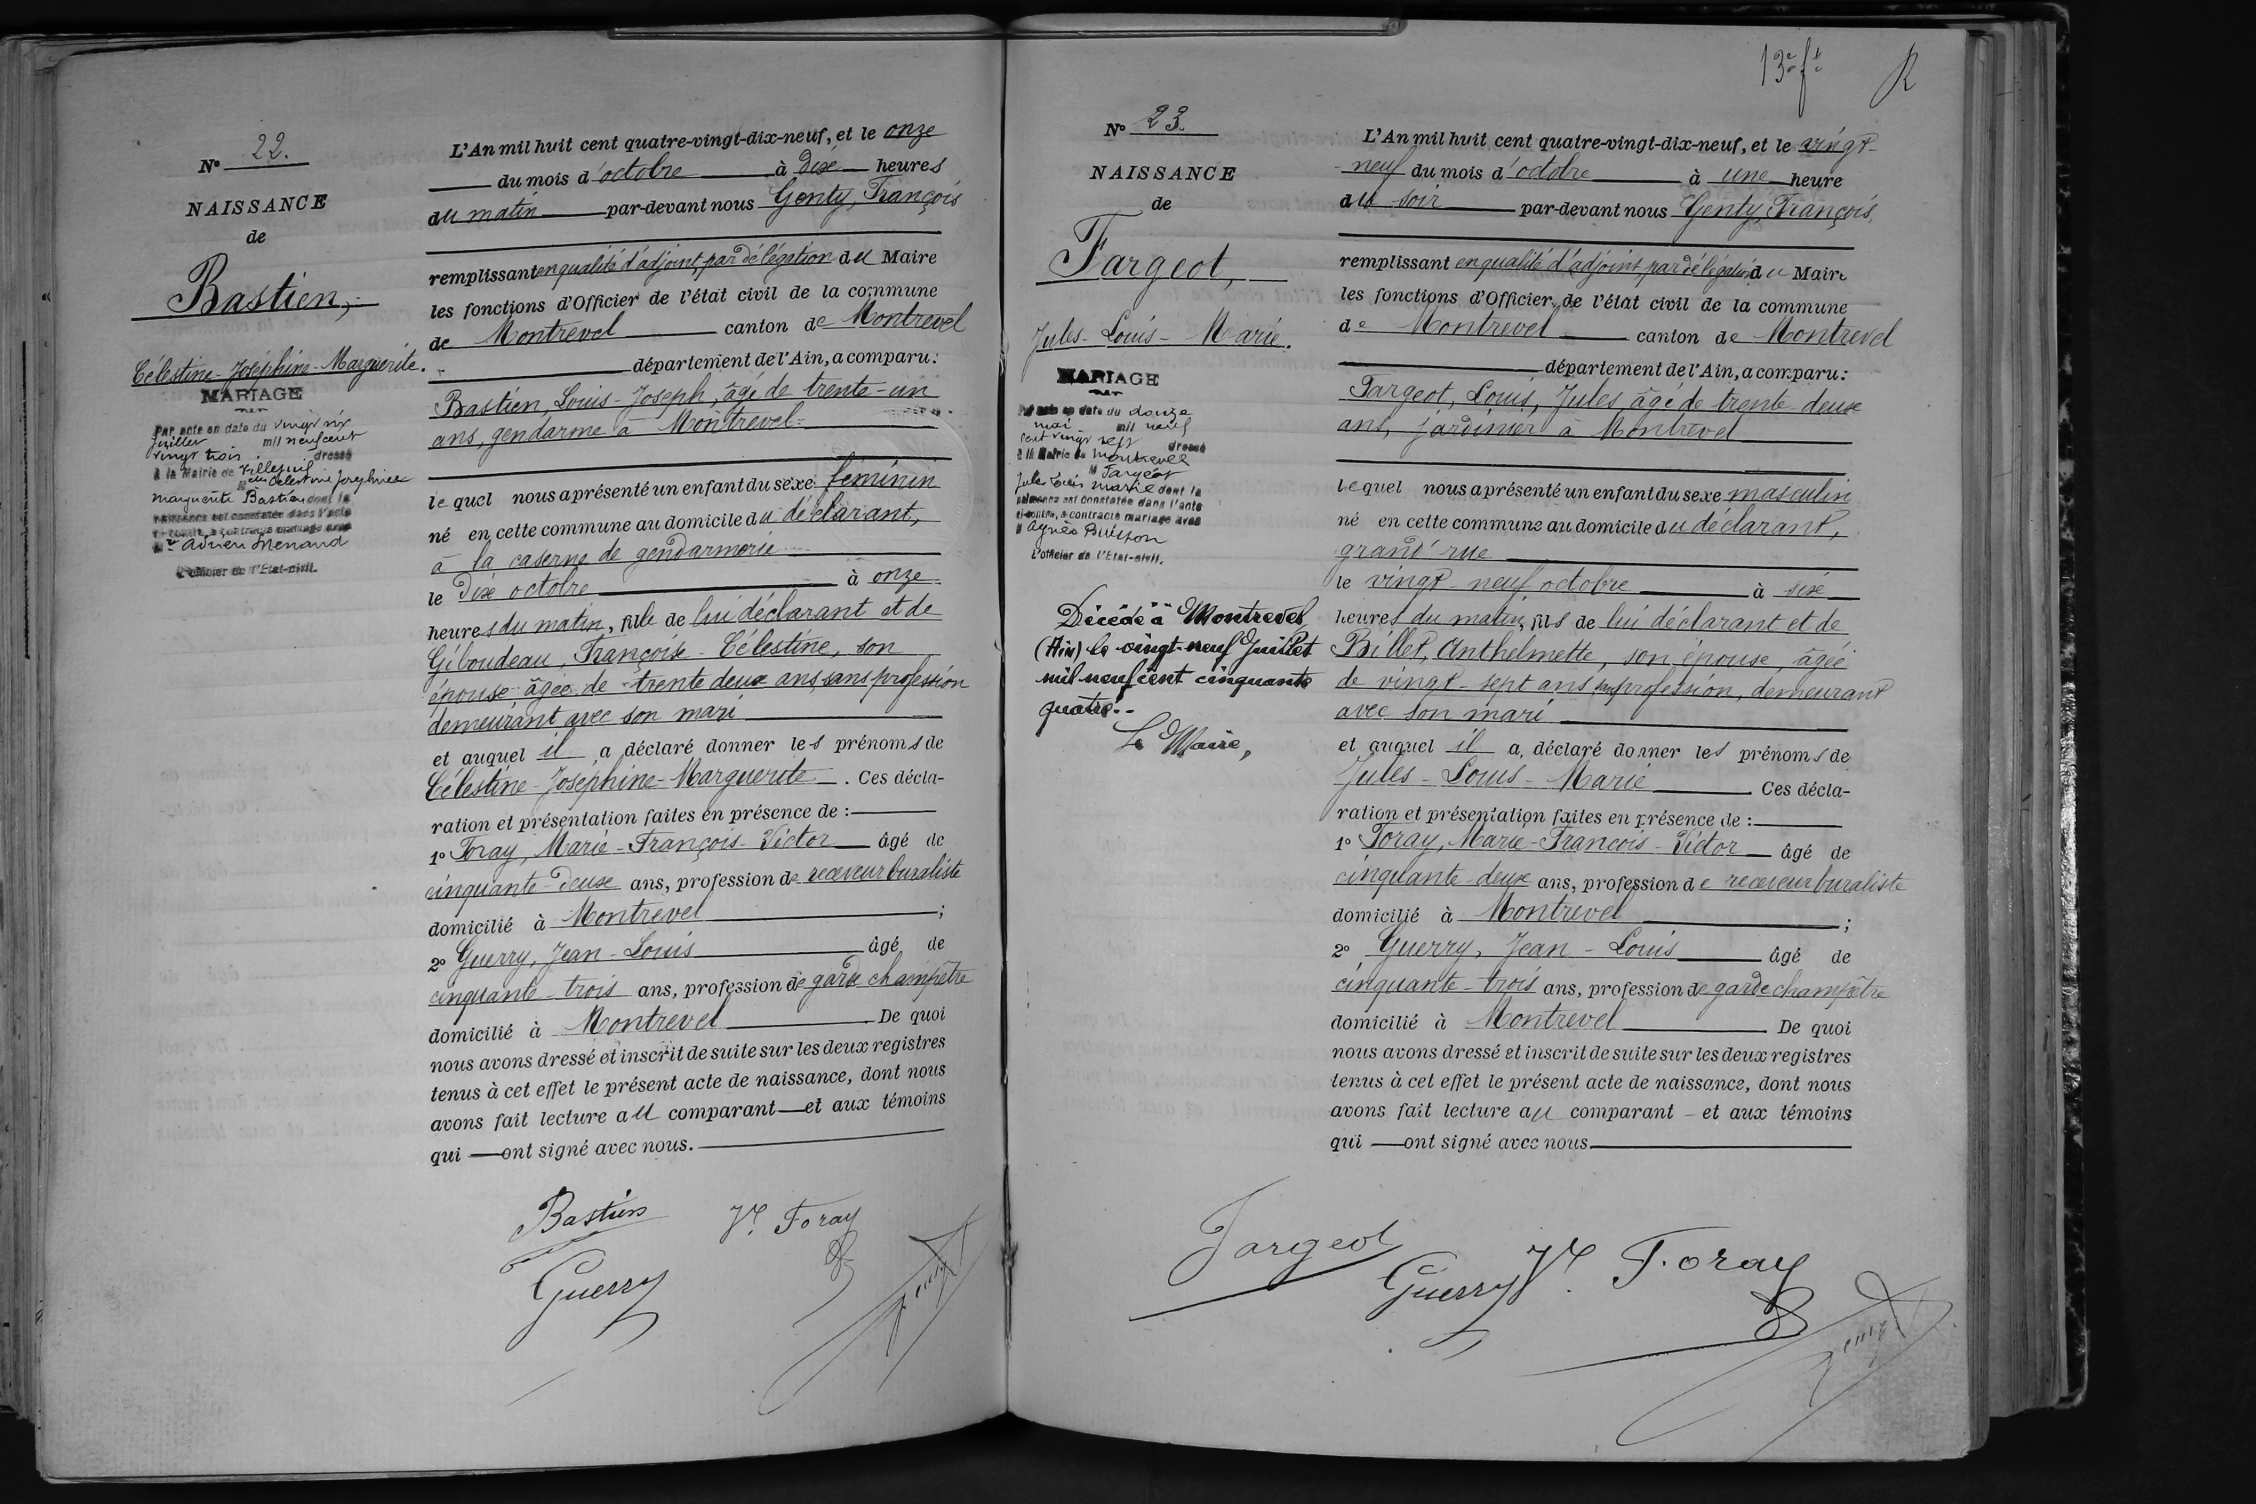 Nº 22.
NAISSANCE
de
Bastien,
Célestine-Joséphine-Marguerite.
MARIAGE
Par acte en date du vingt six
juillet mil neuf cent
vingt trois dressé
à la Mairie de Villejuif
Melle Célestine Joséphine
Marguerite Bastien dont la
naissance est constatée dans l'acte
ci-contre, a contracté mariage avec
Mr Adrien Menand
L'officier de l'Etat-civil.
L'An mil huit cent quatre-vingt-dix-neuf, et le onze
du mois d'octobre à dix heures
du matin par-devant nous Genty, François
remplissant en qualité d'adjoint, par délégation du Maire
les fonctions d'Officier de l'état civil de la commune
de Montrevel canton de Montrevel
département de l'Ain, a comparu:
Bastien, Louis-Joseph, âgé de trente-un
ans, gendarme à Montrevel
lequel nous a présenté un enfant du sexe féminin
né en cette commune au domicile du déclarant,
à la caserne de gendarmerie
le dix octobre à onze
heures du matin, fille de lui déclarant et de
Géboudeau, Françoise-Célestine, son
épouse âgée de trente deux ans, sans profession
demeurant avec son mari
et auquel il a déclaré donner les prénoms de
Célestine-Joséphine-Marguerite. Ces décla-
ration et présentation faites en présence de :
1º Foray, Marie-François-Victor âgé de
cinquante-deux ans, profession de receveur buraliste
domicilié à Montrevel ;
2º Guerry, Jean-Louis âgé de
cinquante-trois ans, profession de garde champêtre
domicilié à Montrevel De quoi
nous avons dressé et inscrit de suite sur les deux registres
tenus à cet effet le présent acte de naissance, dont nous
avons fait lecture au comparant et aux témoins
qui ont signé avec nous.
Bastien Vr. Foray
Guerry Genty
13e ft R
Nº 23.
NAISSANCE
de
Fargeot,
Jules-Louis-Marie.
MARIAGE
Par acte en date du douze
mai mil neuf
cent vingt sept dressé
à la Mairie de Montrevel
M Fargeot
Jules Louis Marie dont la
naissance est constatée dans l'acte
ci-contre, a contracté mariage avec
Agnès Buisson
L'officier de l'Etat-civil.
Décédé à Montrevel
(Ain) le vingt-neuf Juillet
mil neuf cent cinquante
quatre.-
Le Maire,
L'An mil huit cent quatre-vingt-dix-neuf, et le vingt-
neuf du mois d'octobre à une heure
du soir par-devant nous Genty, François,
remplissant en qualité d'adjoint, par délégation du Maire
les fonctions d'Officier de l'état civil de la commune
de Montrevel canton de Montrevel
département de l'Ain, a comparu:
Fargeot, Louis, Jules âgé de trente deux
ans, jardinier à Montrevel
lequel nous a présenté un enfant du sexe masculin
né en cette commune au domicile du déclarant,
grand'rue
le vingt-neuf octobre à six
heures du matin, fils de lui déclarant et de
Billet, Anthelmette, son épouse, âgée
de vingt-sept ans, sans profession, demeurant
avec son mari
et auquel il a déclaré donner les prénoms de
Jules-Louis-Marie Ces décla-
ration et présentation faites en présence de :
1º Foray, Marie-François-Victor âgé de
cinquante-deux ans, profession de receveur buraliste
domicilié à Montrevel ;
2º Guerry, Jean-Louis âgé de
cinquante-trois ans, profession de garde champêtre
domicilié à Montrevel De quoi
nous avons dressé et inscrit de suite sur les deux registres
tenus à cet effet le présent acte de naissance, dont nous
avons fait lecture au comparant et aux témoins
qui ont signé avec nous
Fargeot Guerry Vr. Foray
Genty